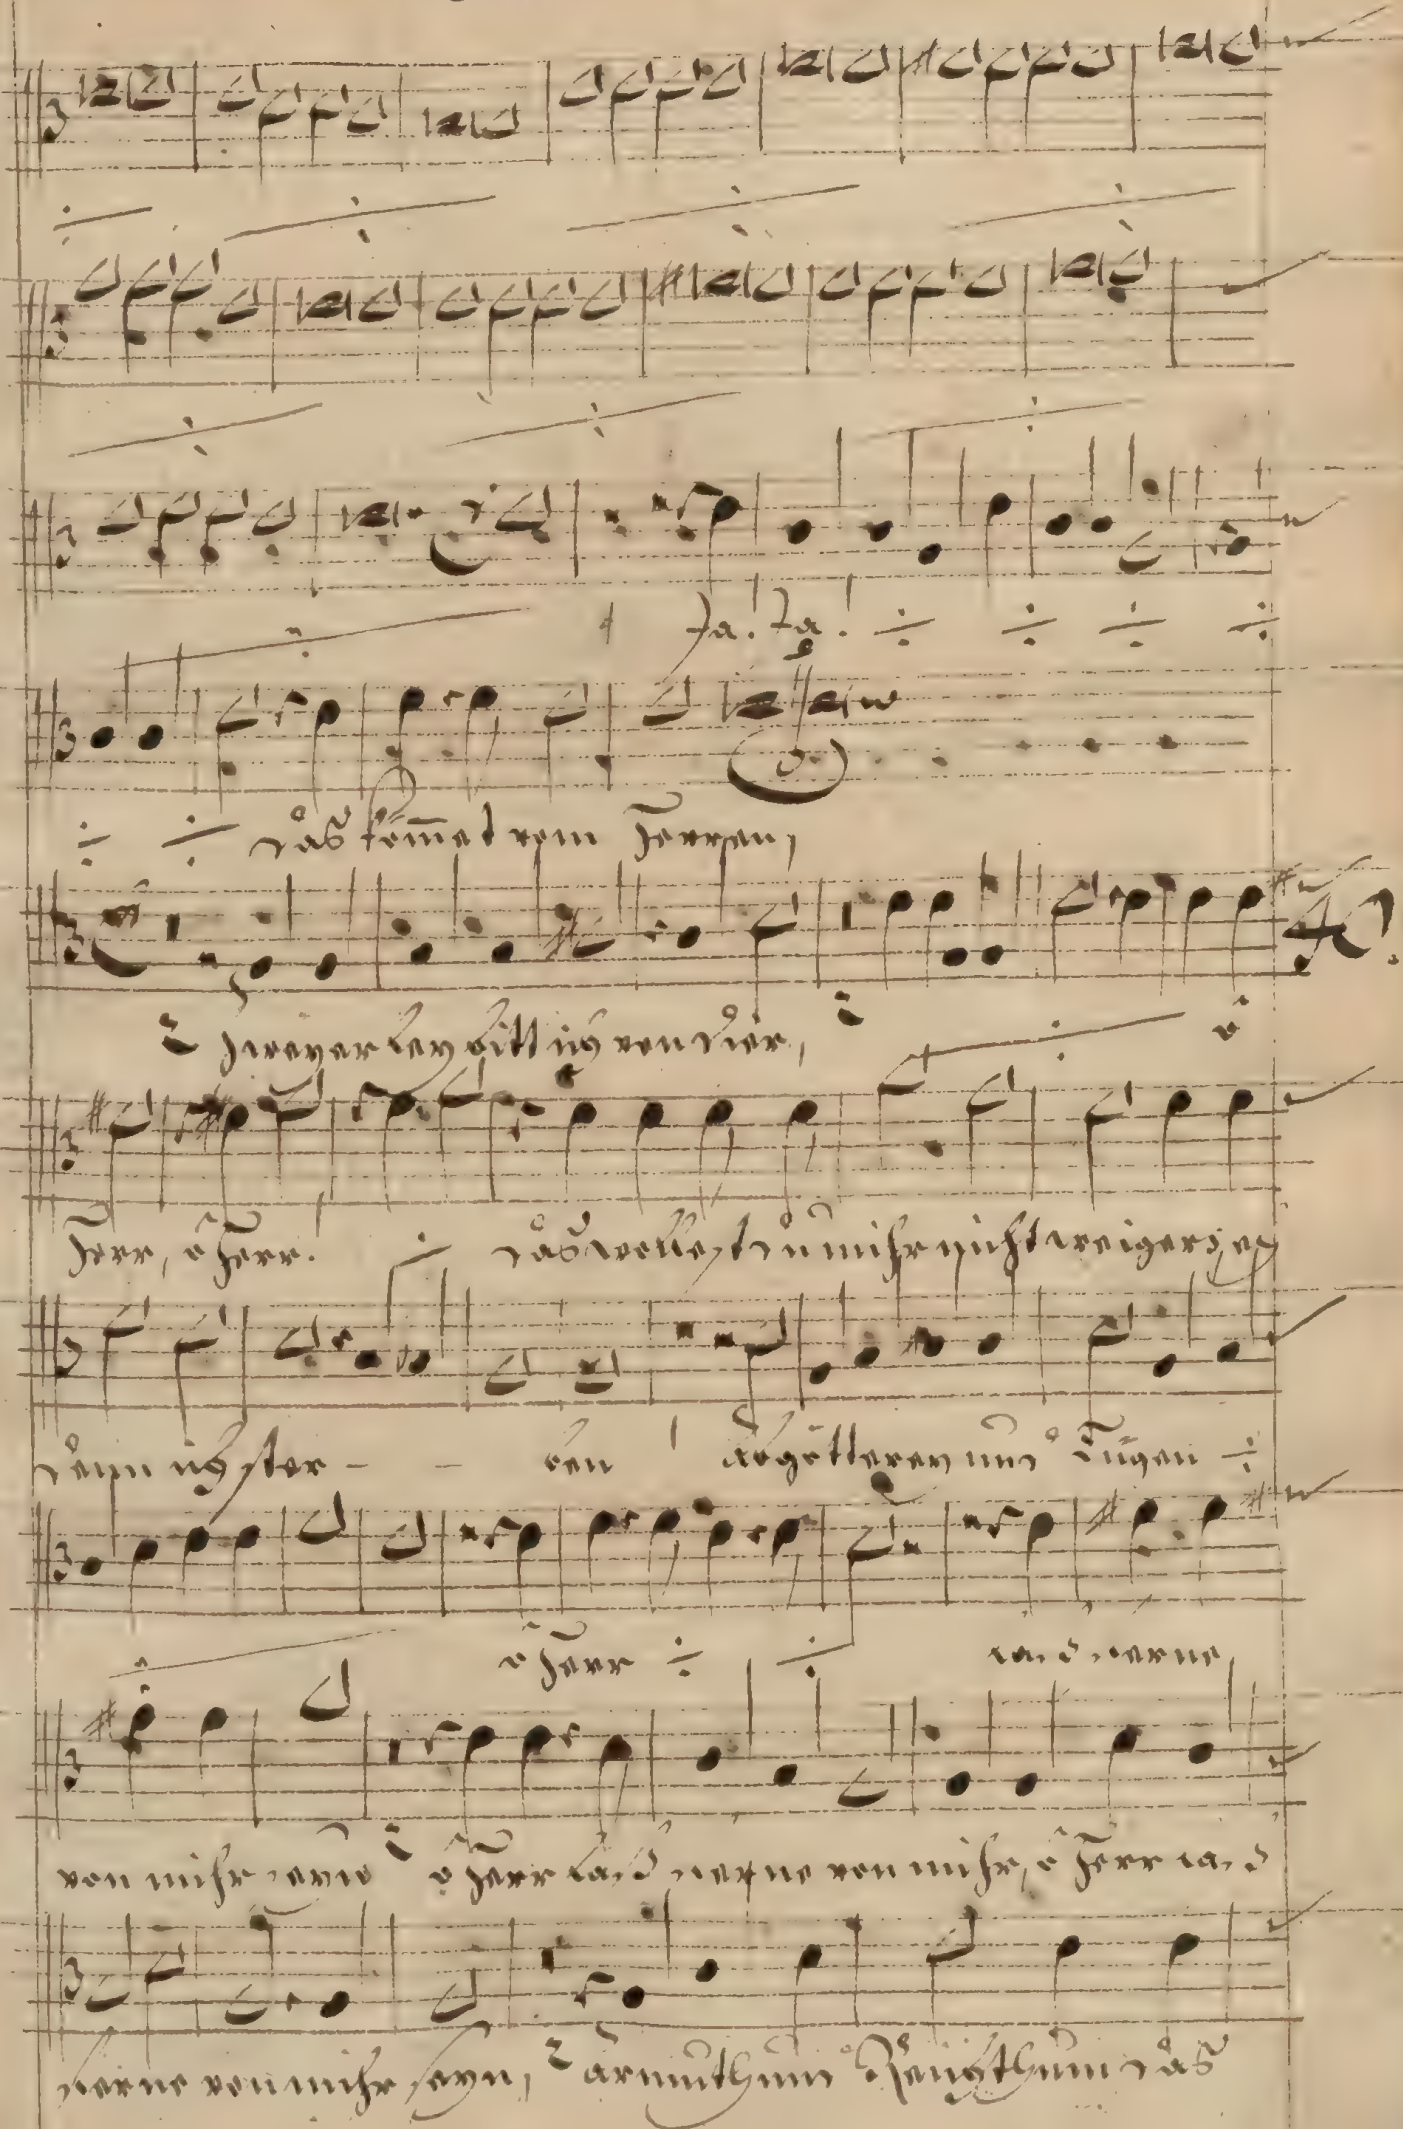 Ja! Ja!
das kom̄et vom Herren,
Zweyerley bitt ich von dier,
ô
Herr, ô Herr! das wollestu mihr nicht weigeren
denn ich ster - - ben Abgötterey und Lügen
ô Herr laß verne
von mihr seyn ô Herr laß verne von mihr, ô Herr laß
verne von mihr seyn, Armuth und Reichthum das